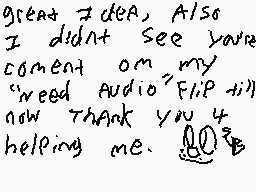 great Idea, Also
I didnt see you're
coment om my
"need Audio" Flip till
now Thank you 4
helping me.